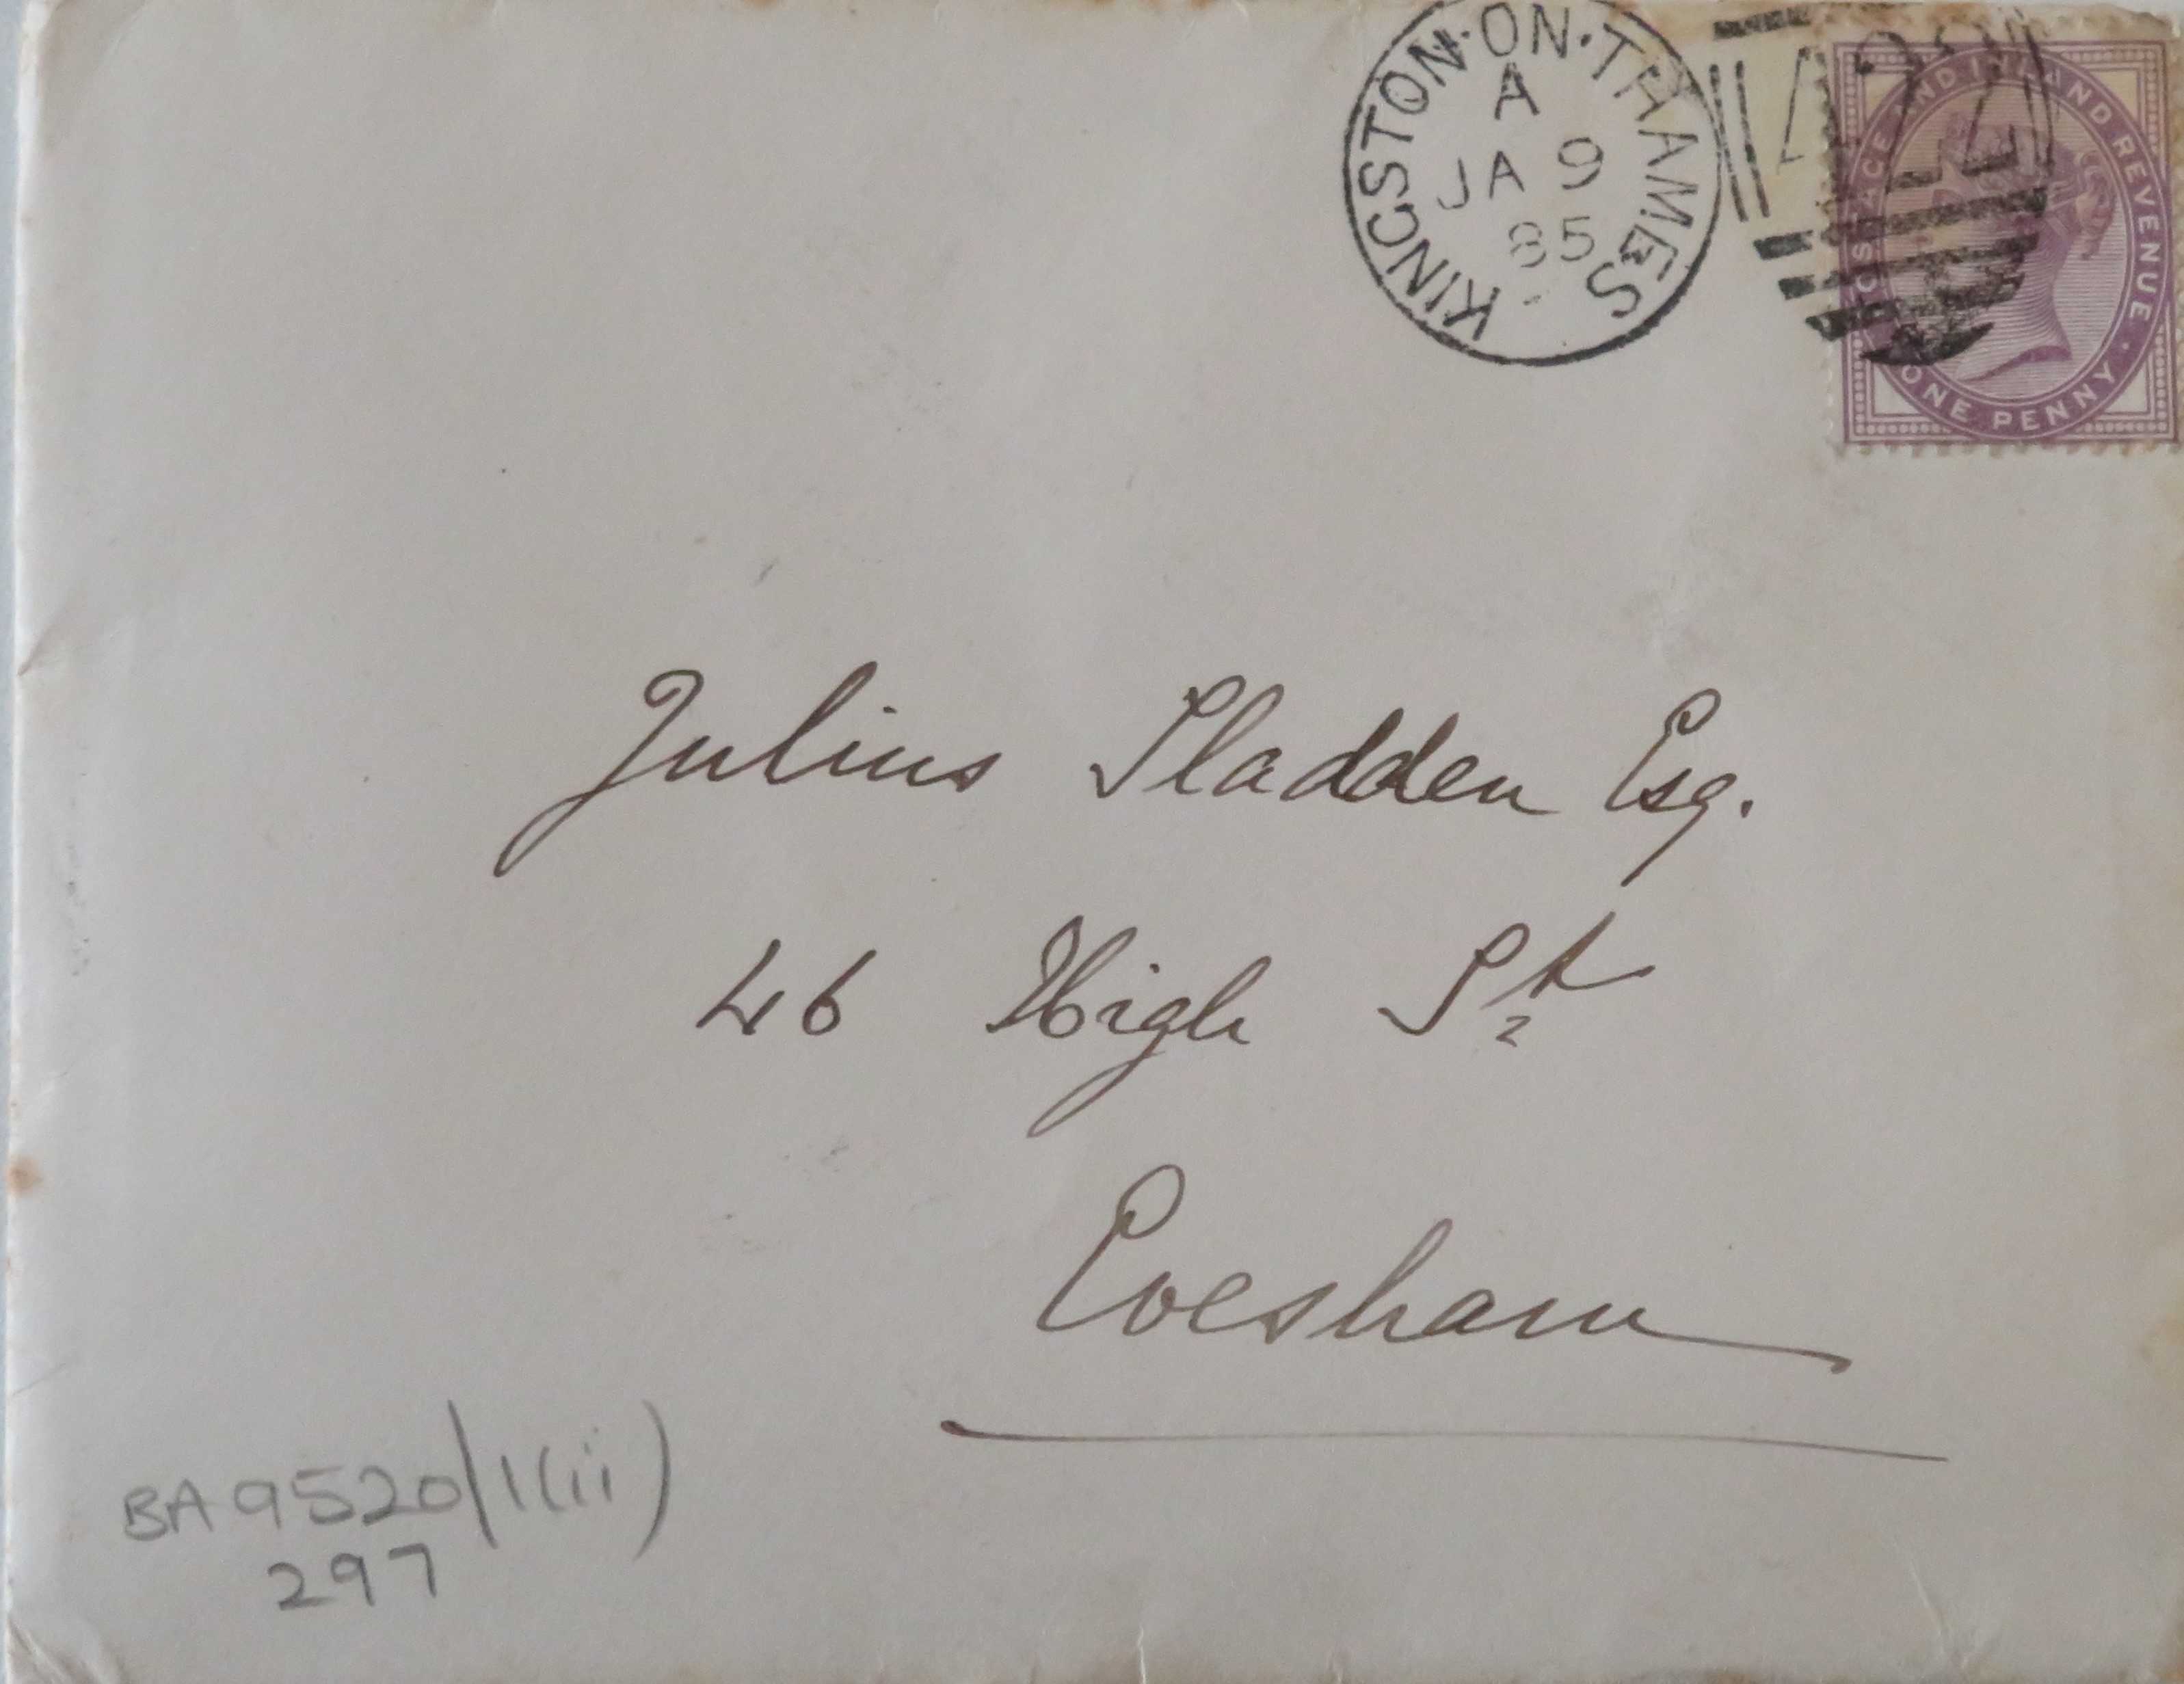 KINGSTON·ON·THAMES
A
JA 9
85
422
POSTAGE AND INLAND REVENUE · ONE PENNY ·
Julius Sladden Esq.
46 High St
Evesham
BA 9520/1(ii)
297